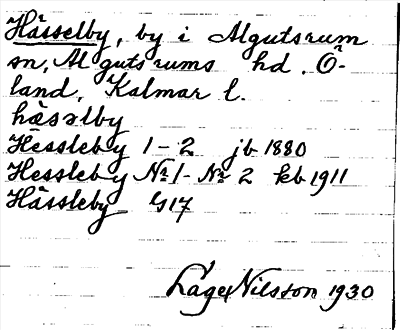 Hässelby, by i Algutsrum
sn, Algutsrums hd. Ö-
land, Kalmar l.
hässəlby
Hessleby 1-2 jb 1880
Hessleby No 1- No 2 kb 1911
Hässleby G17
Låge Nilsson 1930